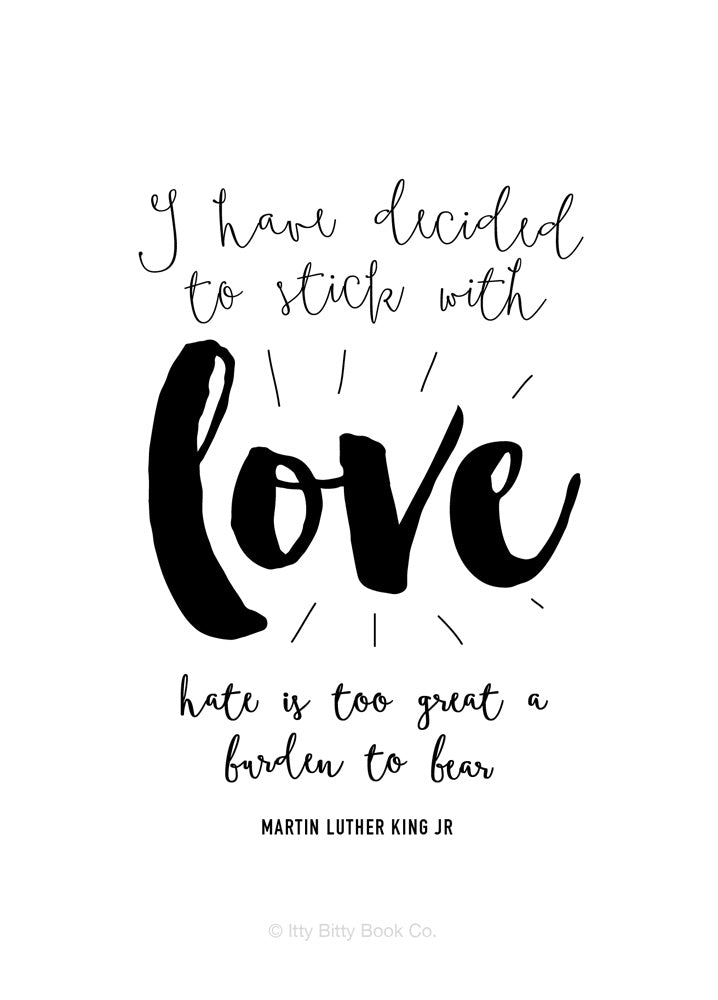 I have decided
to stick with
love
hate is too great a
burden to bear
MARTIN LUTHER KING JR
© Itty Bitty Book Co.